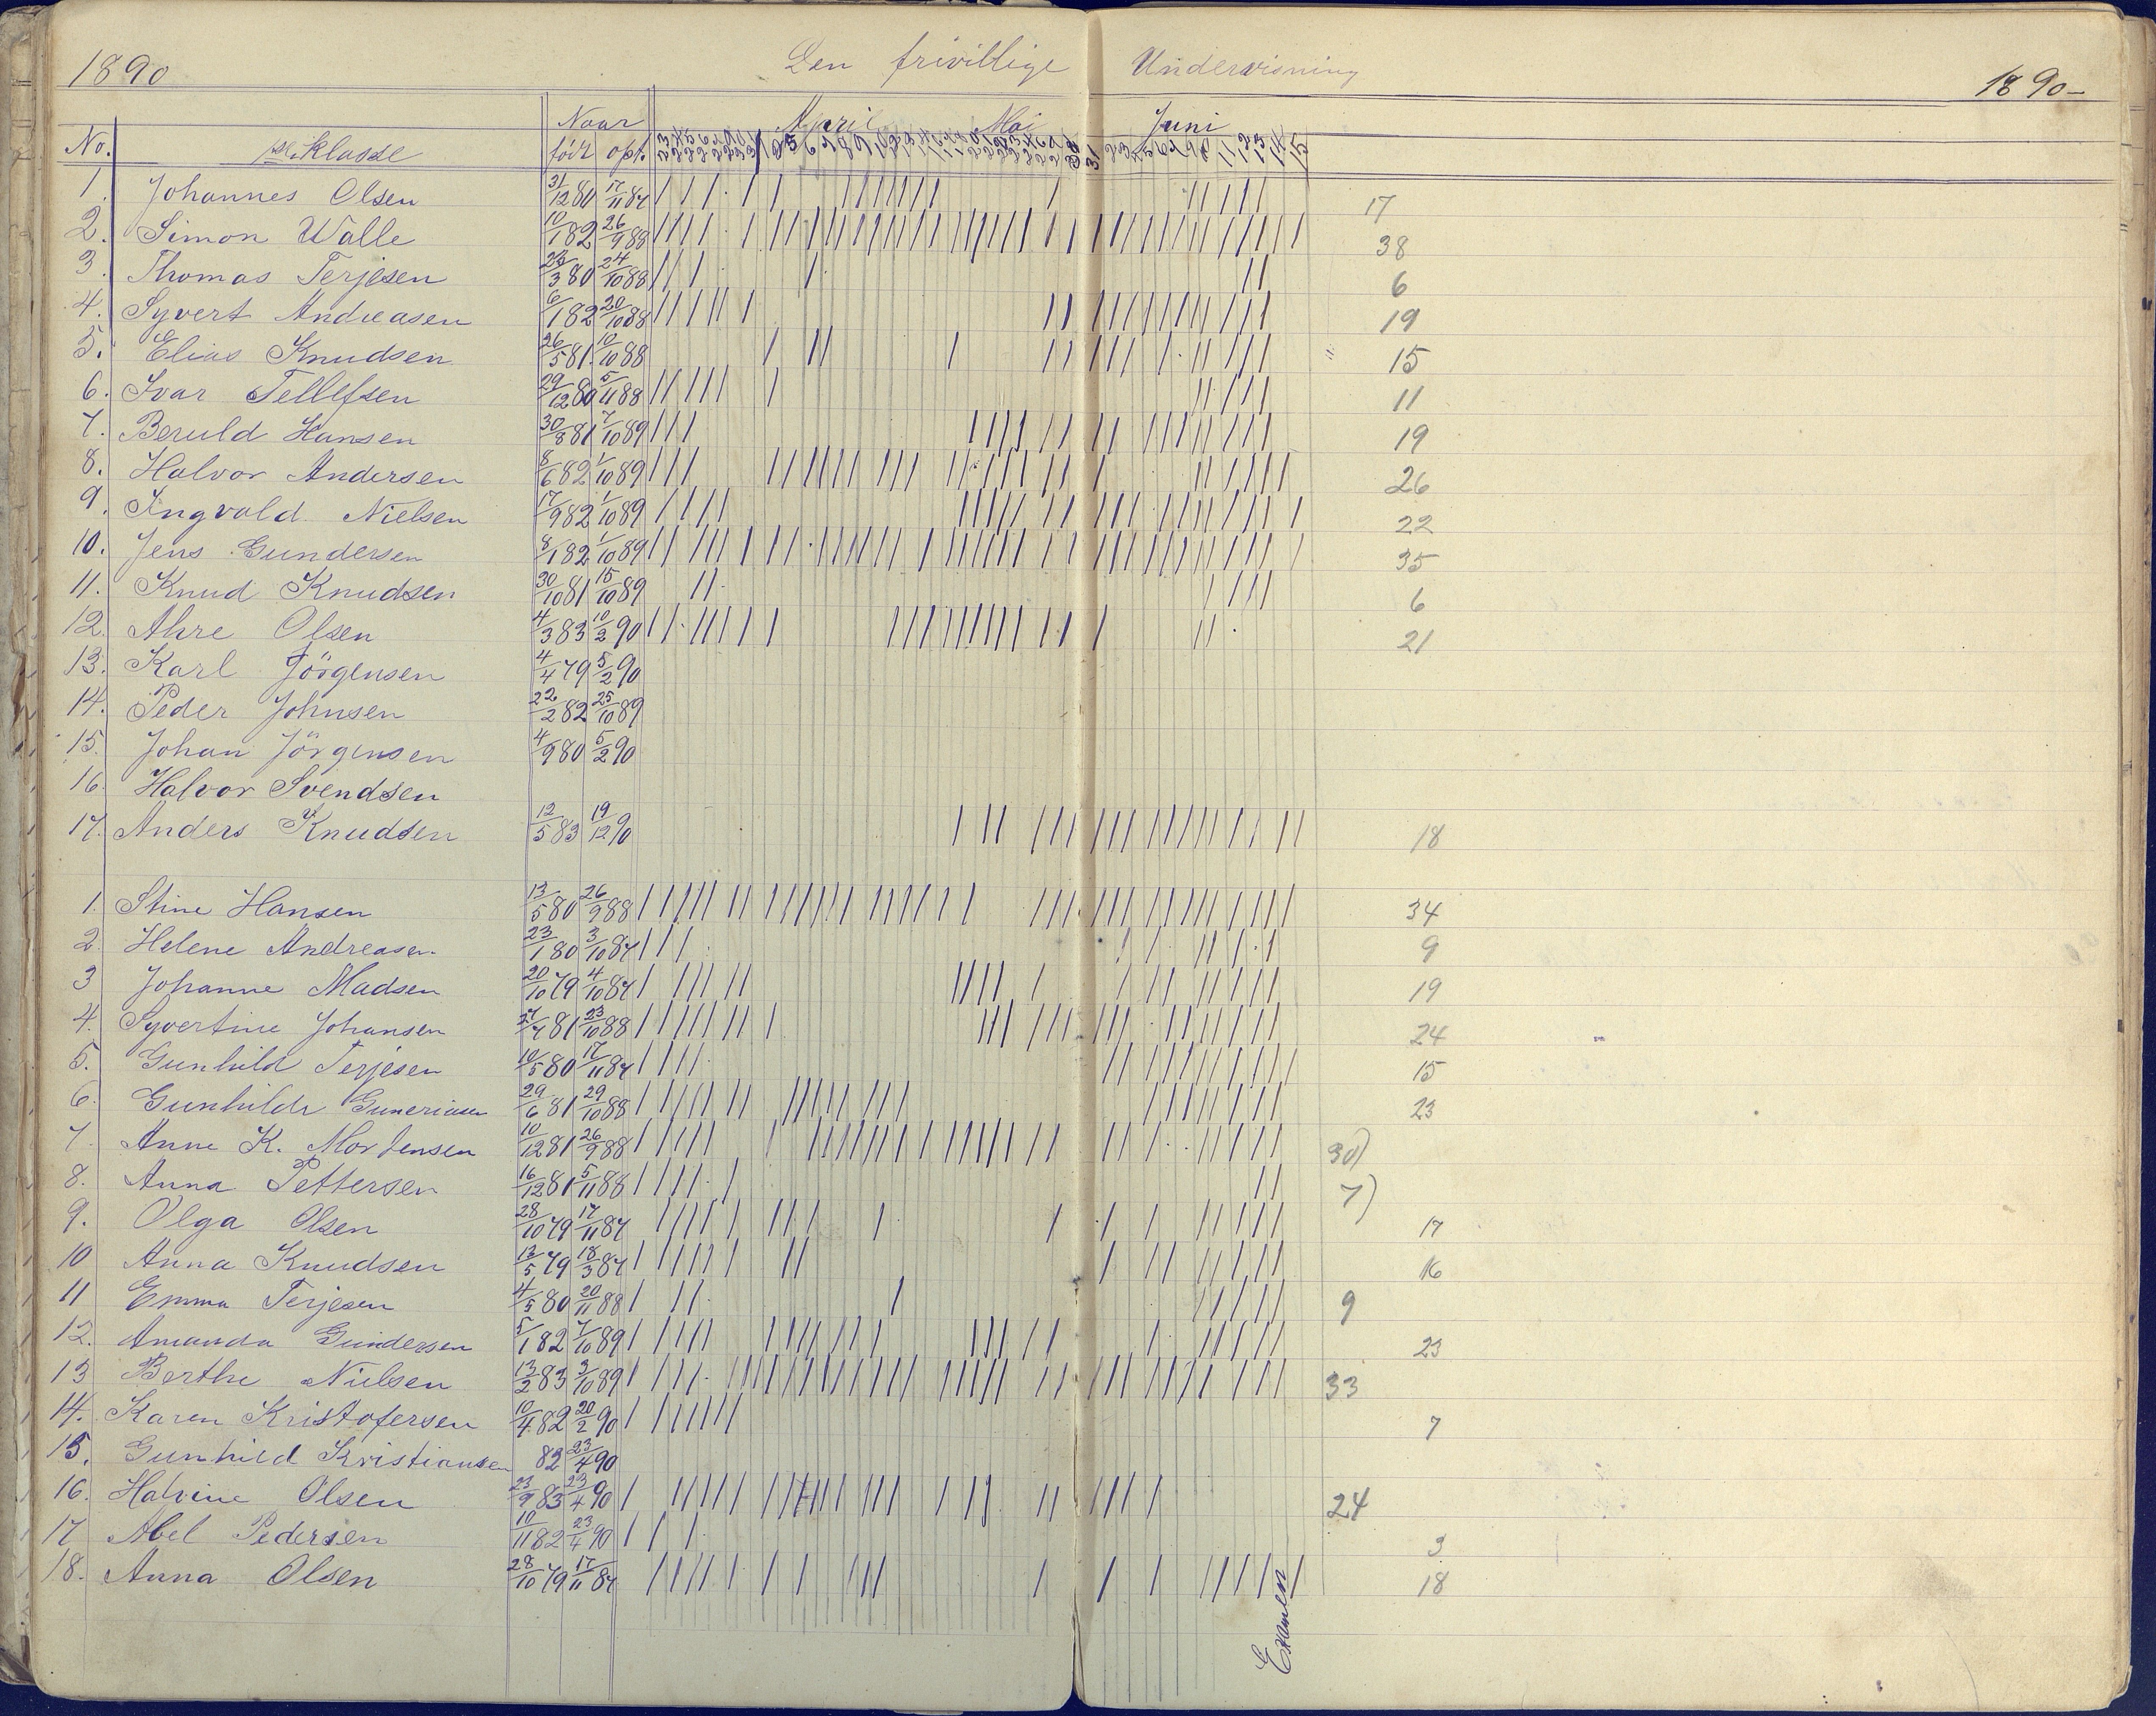 1890 Den frivillige Undervisning 1890-
Naar April Mai Juni
No. Klasse född opt.
1. Johannes Olsen 31/12 80 17/11 87 17
2. Simon Walle 10/1 82 26/9 88 38
3. Thomas Terjesen 26/3 80 24/10 88 6
4. Syvert Andreasen 6/1 82 20/10 88 19
5. Elias Knudsen 26/5 81. 10/10 88 " 15
6. Ivar Tellefsen 29/12 80 5/11 88 11
7. Beruld Hansen 30/8 81 7/10 89 19
8. Halvor Andersen 8/6 82 1/10 89 26
9. Ingvald Nielsen 17/9 82 1/10 89 22
10. Jens Gundersen 8/1 82 1/10 89 35
11. Knud Knudsen 30/10 81 15/10 89 6
12. Ahre Olsen 4/3 83 10/2 90 21
13. Karl Jörgensen 4/4 79 5/2 90
14. Peder Johnsen 22/2 82 25/10 89
15. Johan Jörgensen 4/9 80 5/2 90
16. Halvor Svendsen
17. Anders Knudsen 12/5 83 19/12 90 18
1. Stine Hansen 13/5 80 26/9 88 34
2. Helene Andreasen 23/1 80 3/10 87 9
3 Johanne Madsen 20/10 79 4/10 87 19
4. Syvertine Johansen 81 23/10 88 24
5. Gunhild Terjesen 10/5 80 17/11 87 15
6. Gunhilde Guneriusen 29/6 81 29/10 88 23
7. Anne K. Mortensen 10/12 81 26/9 88 30)
8. Anna Pettersen 16/12 81 5/11 88 7)
9. Olga Olsen 28/10 79 17/11 87 17
10 Anna Knudsen 13/5 79 18/3 87 16
11 Emma Terjesen 4/5 80 20/11 88 9
12. Amanda Gundersen 5/1 82 7/10 89 23
13 Berthe Nielsen 13/2 83 3/10 89 33
14. Karen Kristofersen 10/4 82 20/2 90 7
15. Gunhild Kristiansen 82 23/4 90
16. Halvine Olsen 23/9 83 23/4 90 24
17 Abel Pedersen 10/11 82 23/4 90 3
18. Anna Olsen 28/10 79 17/11 87 18
Examen